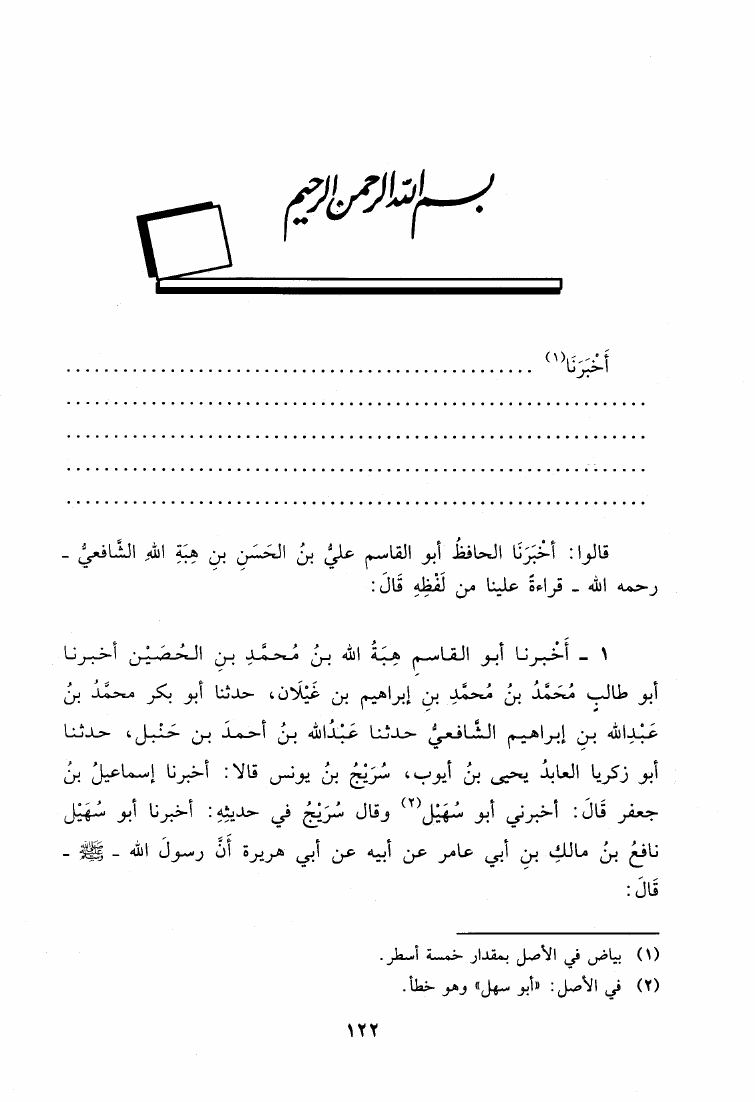 بسم الله الرحمن الرحيم
أَخْبَرَنَا(١) ................................................
................................................................
................................................................
................................................................
................................................................
قالوا: أَخْبَرَنَا الحافظُ أبو القاسم عليُّ بنُ الحَسَنِ بنِ هِبَةِ اللهِ الشَّافعيُّ -
رحمه الله - قراءةً علينا من لَفْظِهِ قَالَ:
١ - أَخْبرنا أبو القاسمِ هِبَةُ الله بنُ مُحمَّدِ بنِ الحُصَيْن أخبرنا
أبو طالبٍ مُحَمَّدُ بنُ مُحمَّدِ بنِ إبراهيم بن غَيْلَان، حدثنا أبو بكر محمَّدُ بنُ
عَبْدِالله بنِ إبراهيم الشَّافعيُّ حدثنا عَبْدُالله بنُ أحمدَ بن حَنْبل، حدثنا
أبو زكريا العابدُ يحيى بنُ أيوب، سُرَيْجُ بنُ يونس قالا: أخبرنا إسماعيلُ بنُ
جعفر قَالَ: أخبرني أبو سُهَيْل(٢) وقال سُرَيْجُ في حديثِهِ: أخبرنا أبو سُهَيْل
نافعُ بنُ مالكِ بنِ أبي عامر عن أبيه عن أبي هريرة أَنَّ رسولَ الله - ﷺ -
قَالَ:
(١) بياض في الأصل بمقدار خمسة أسطر.
(٢) في الأصل: «أبو سهل» وهو خطأ.
١٢٢